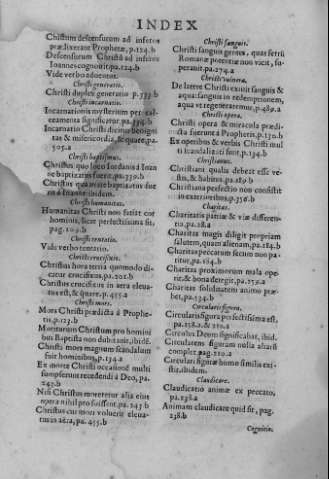 INDEX
Christum descensurum ad inferos
prædixerant Prophetæ, p.124.b
Descensurum Christū ad inferos
Ioannes cognouit, pa.124.b
Vide verbo aduentus.
Christi generatio.
Christi duplex generatio p.333.b
Christi incarnatio.
Incarnationis mysterium per
calceamenta significatur, pa.334.b
Incarnatio Christi diuinæ benignitatis
& misericordiæ, & quare, pa.
305.a
Christi baptismus.
Christus quo loco Iordanis à Ioanne
baptizatus fuerit, pa.339.b
Christus qua ætate baptizatus fuerit
à Ioanne ibidem.
Christi humanitas.
Humanitas Christi non fuisset cor
hominis, licet perfectissima sit,
pag.109.b
Christi tentatio.
Vide verbo tentatio.
Christi crucifixio.
Christus hora tertia quomodo dicatur
crucifixus, pa.202.b
Christus crucifixus in aera eleuatus
est, & quare, p.455.a
Christi mors.
Mors Christi prædicta à Prophetis,
p.127.b
Moriturum Christum pro hominibus
Baptista non dubitauit, ibidē.
Christi mors magnum scandalum
fuit hominibus, p.134.a
Ex morte Christi occasionē multi
sumpserunt recedendi à Deo, pa.
247.b
Nisi Christus moreretur alia eius
opera nihil profuissent, pa.245.b
Christus cur mori voluerit eleuatus
in aëra, pa.455.b
Christi sanguis.
Christi sanguis gentes, quas ferrū
Romanæ potentiæ non vicit, superauit,
pa.274.a
Christi vulnera.
De latere Christi exiuit sanguis &
aqua: sanguis in redemptionem,
aqua vt regeneraremur, p.489.b
Christi opera.
Christi opera & miracula prædicta
fuerunt à Prophetis, p.130.b
Ex operibus & verbis Christi multi
scandalizati sunt, p.134.b
Christianus.
Christiani qualis debeat esse vestis,
& habitus, pa.189.b
Christiana perfectio non consistit
in exterioribus, p.356.b
Charitas.
Charitatis patriæ & viæ differentia,
pa.28.a
Charitas magis diligit propriam
salutem, quam alienam, pa.184.b
Charitas peccatorum secum non patitur,
pa.184.b
Charitas proximorum mala operit,
& bona detegit, pa.253.a
Charitas soliditatem animo præbet,
pa.534.b
Circularis figura.
Circularis figura perfectissima est,
pa.258.a, & 210.a
Circulus Deum significabat, ibid.
Circularem figuram nostra altaris
complet, pag.210.a
Circularis figuræ homo similis existit,
ibidem.
Claudicare.
Claudicatio animæ ex peccato,
pa.238.a
Animam claudicare quid sit, pag.
238.b
Cognitio.